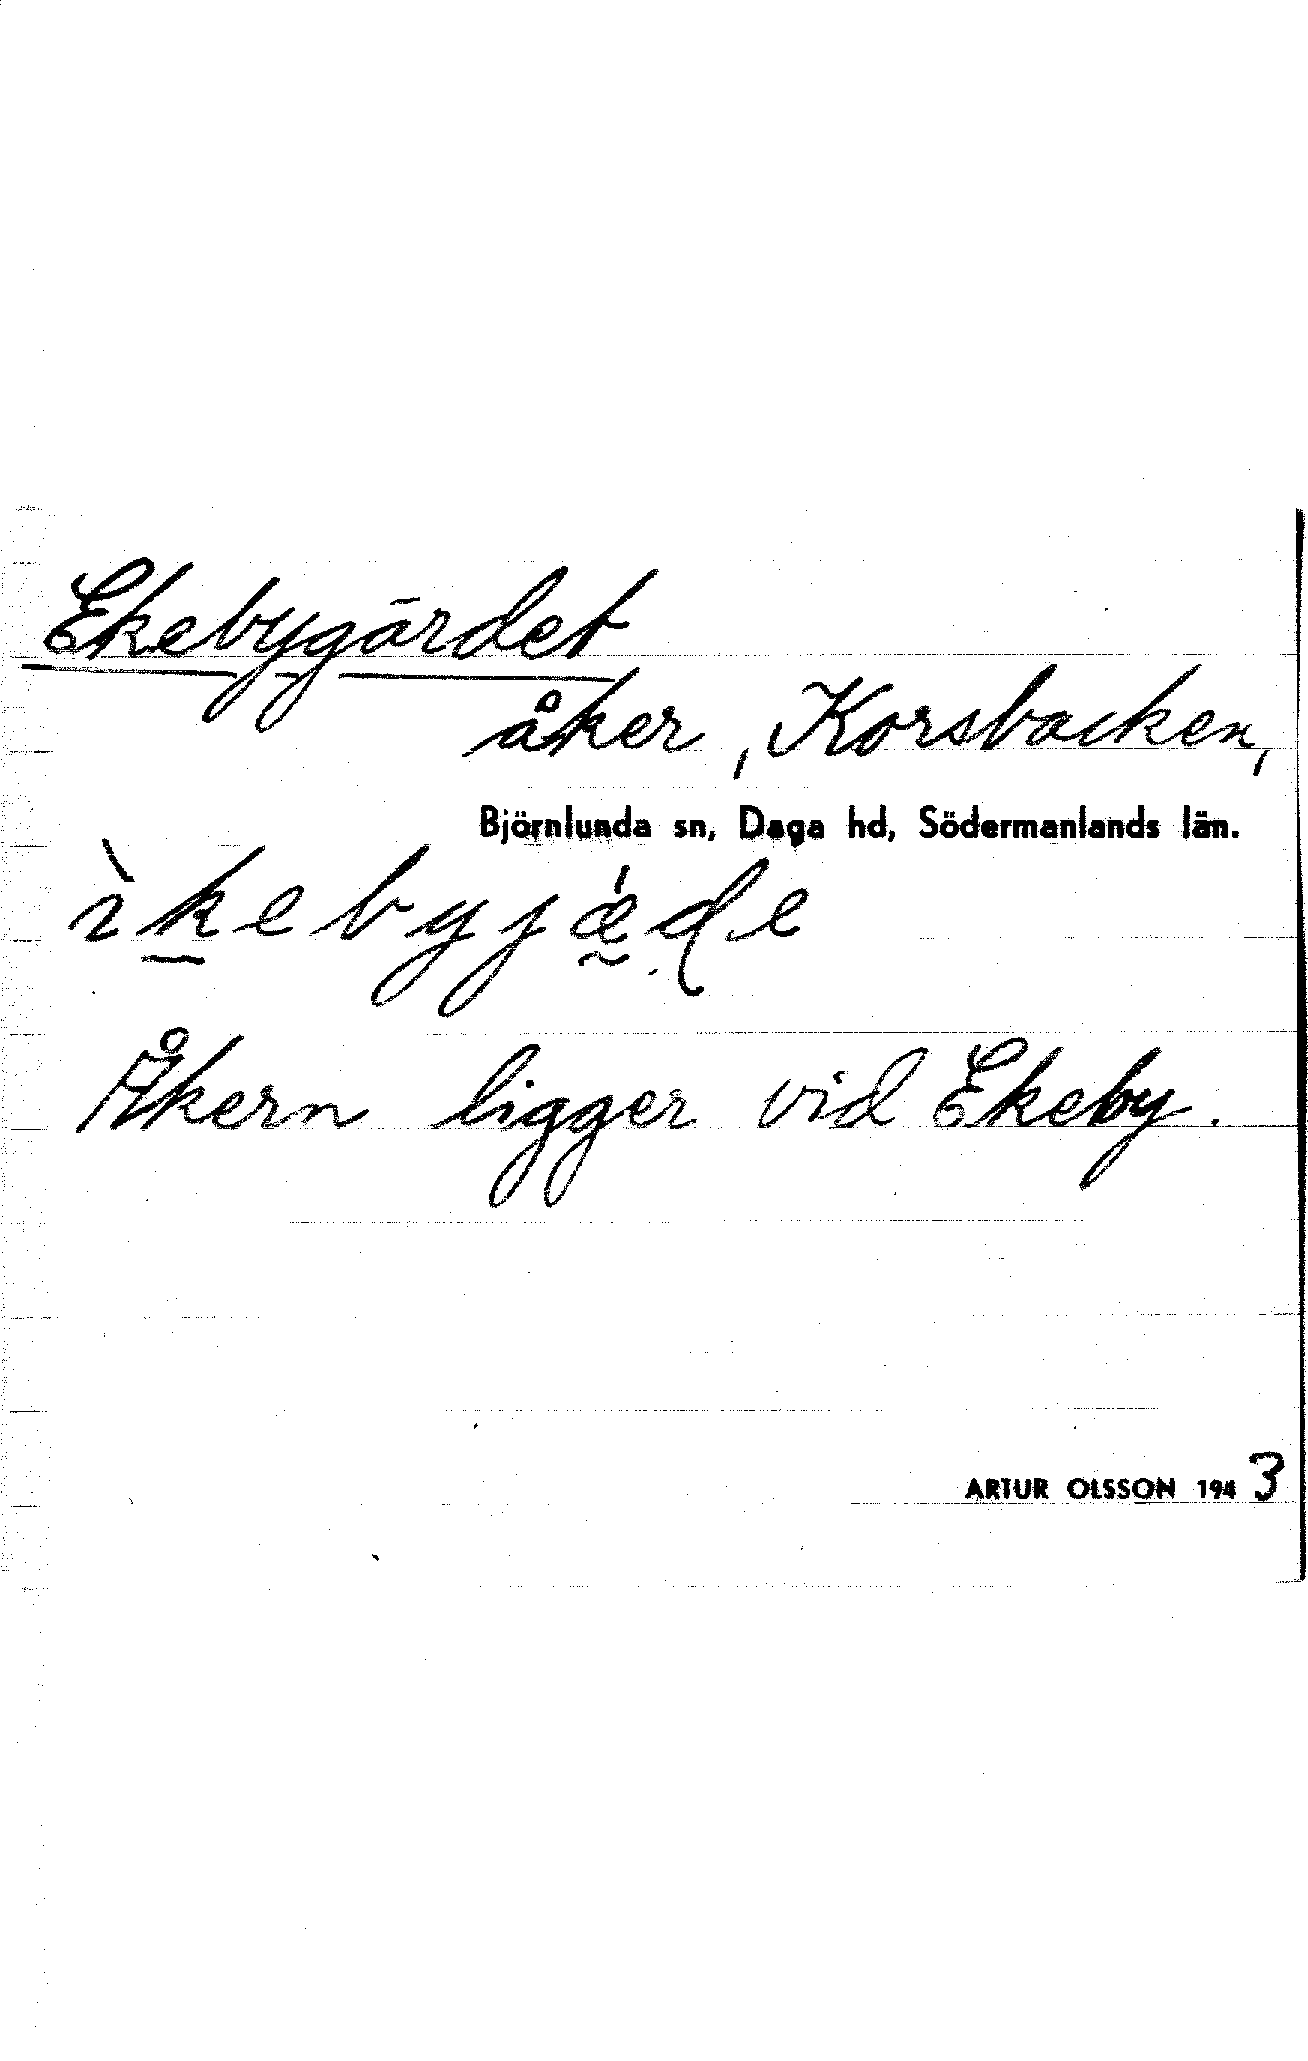 Ekebygärdet
åker, Korsbacken,
Björnlunda sn, Daga hd, Södermanlands län.
ìkebyjǽde
Åkern ligger vid Ekeby.
ARTUR OLSSON 1943